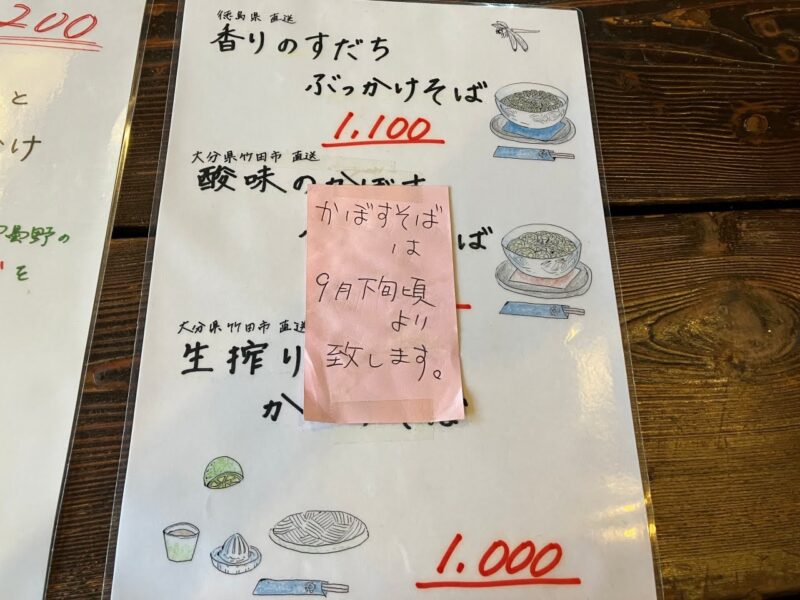 200
と
け
の
を
徳島県 直送
香りのすだち
ぶっかけそば
1.100
大分県竹田市 直送
酸味のかぼす
そば
かぼすそば
は
9月下旬頃
より
致します。
大分県竹田市 直送
生搾り
か
そば
1.000